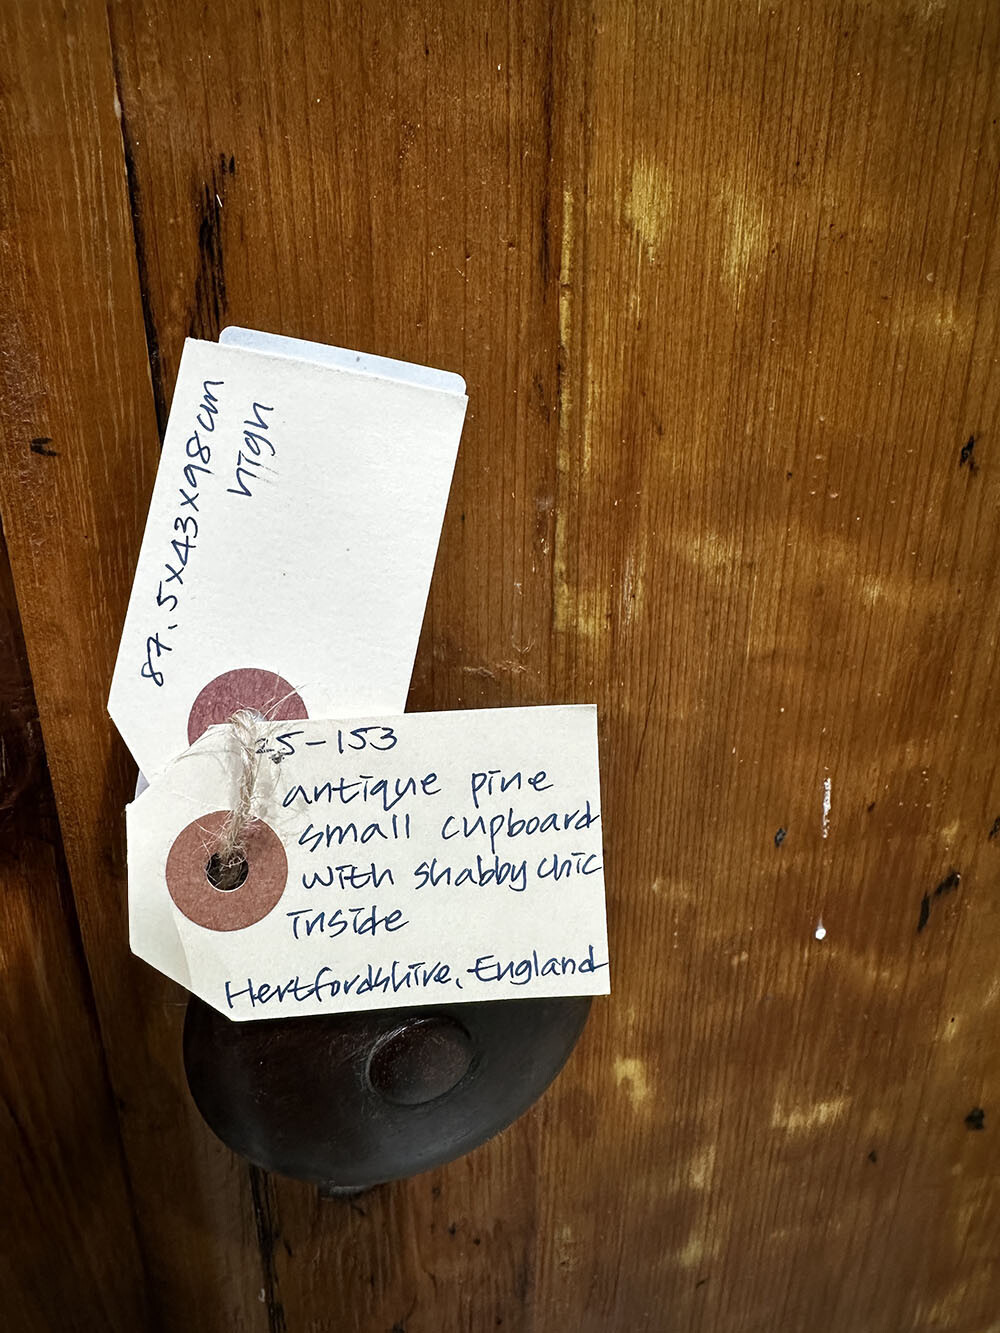 87.5x43x98cm
high
25-153
antique pine
small cupboard
with shabby chic
inside
Hertfordshire, England